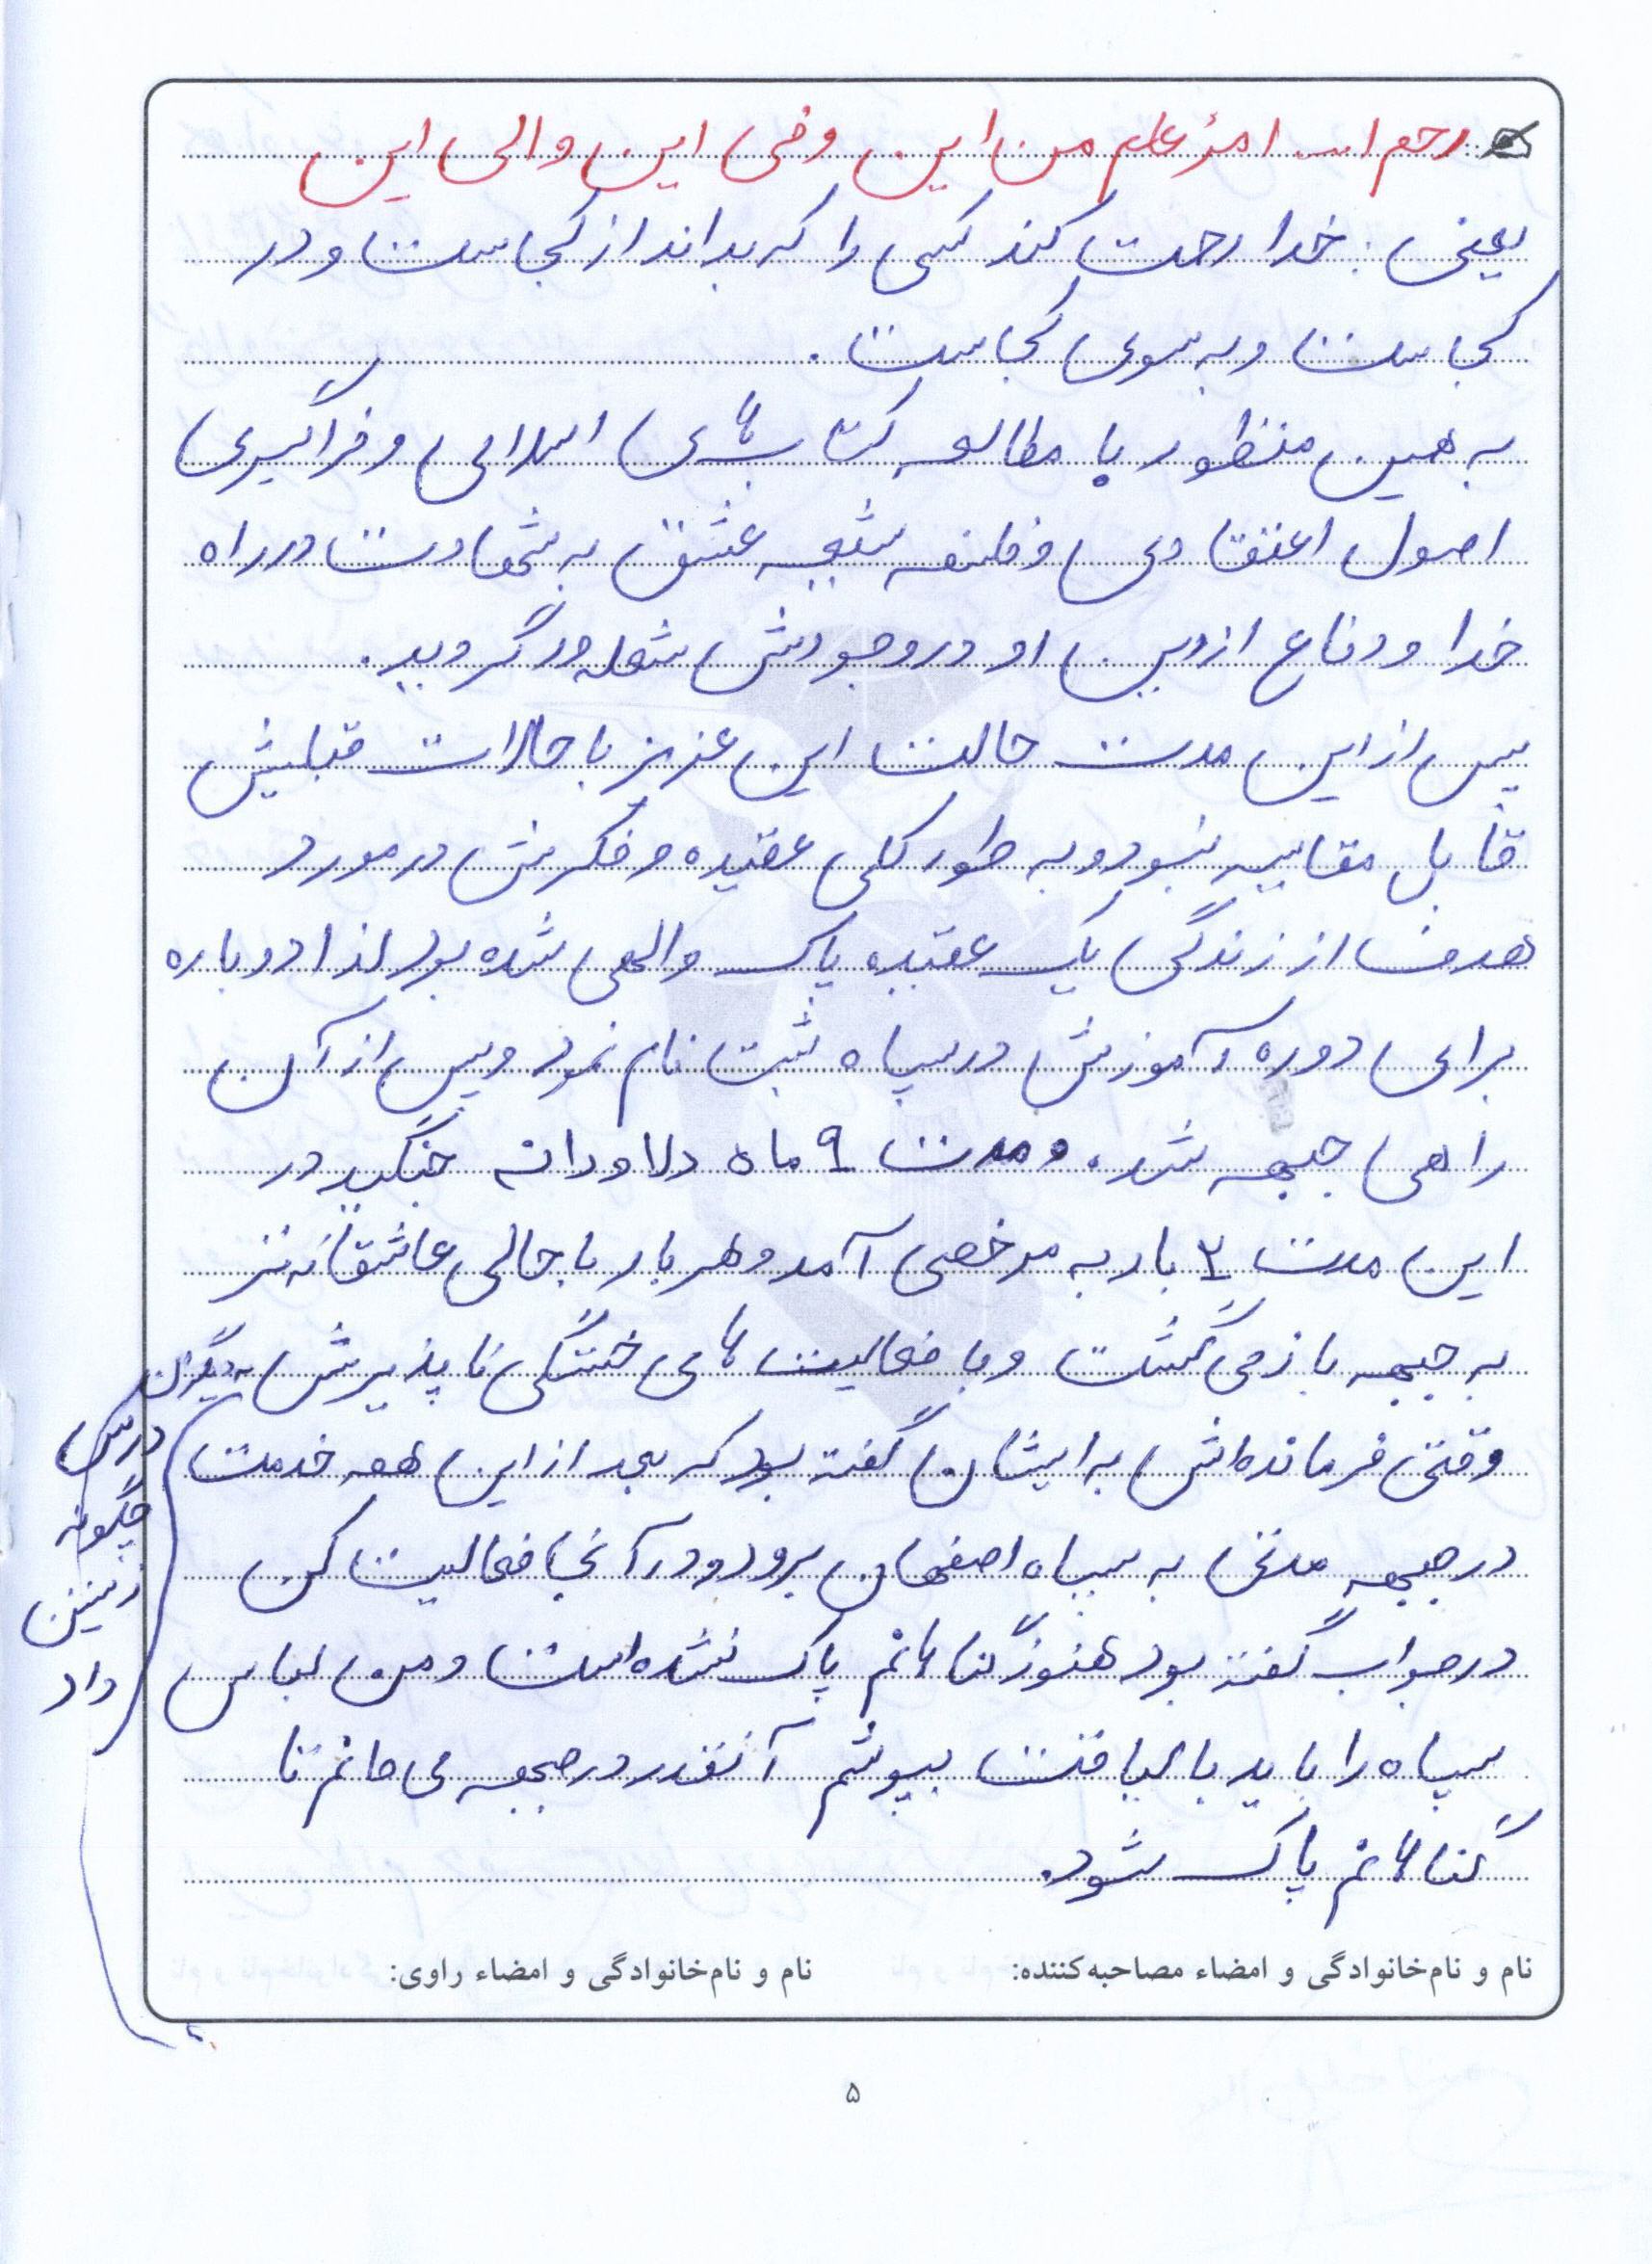 رحم الله امرء علم من این وفی این والی این
یعنی: خدا رحمت کند کسی را که بداند از کجاست و در
کجاست و به سوی کجاست.
به همین منظور با مطالعه کتاب های اسلامی و فراگیری
اصول اعتقادی و فلسفه شیعه عشق به شهادت در راه
خدا و دفاع از دین او در وجودش شعله ور گردید.
پس از این مدت حالت این عزیز با حالات قبلیش
قابل مقایسه نبود و به طور کلی عقیده و فکرش در مورد
هدف از زندگی یک عقیده پاک و الهی شده بود لذا دوباره
برای دوره آموزش در سپاه ثبت نام نمود و پس از آن
راهی جبهه شد. و مدت ۹ ماه دلاورانه جنگید در
این مدت ۲ بار به مرخصی آمد و هر بار با حالی عاشقانه تر
به جبهه باز می گشت و با فعالیت های خستگی ناپذیرش به دیگران
درس
چگونه
زیستن
داد
وقتی فرمانده اش به ایشان گفته بود که بعد از این همه خدمت
در جبهه مدتی به سپاه اصفهان برو و در آنجا فعالیت کن
در جواب گفته بود هنوز گناهانم پاک نشده است و من لباس
سپاه را باید با لیاقت بپوشم آنقدر در جبهه می مانم تا
گناهانم پاک شود.
نام و نام‌خانوادگی و امضاء مصاحبه‌کننده: نام و نام‌خانوادگی و امضاء راوی:
۵